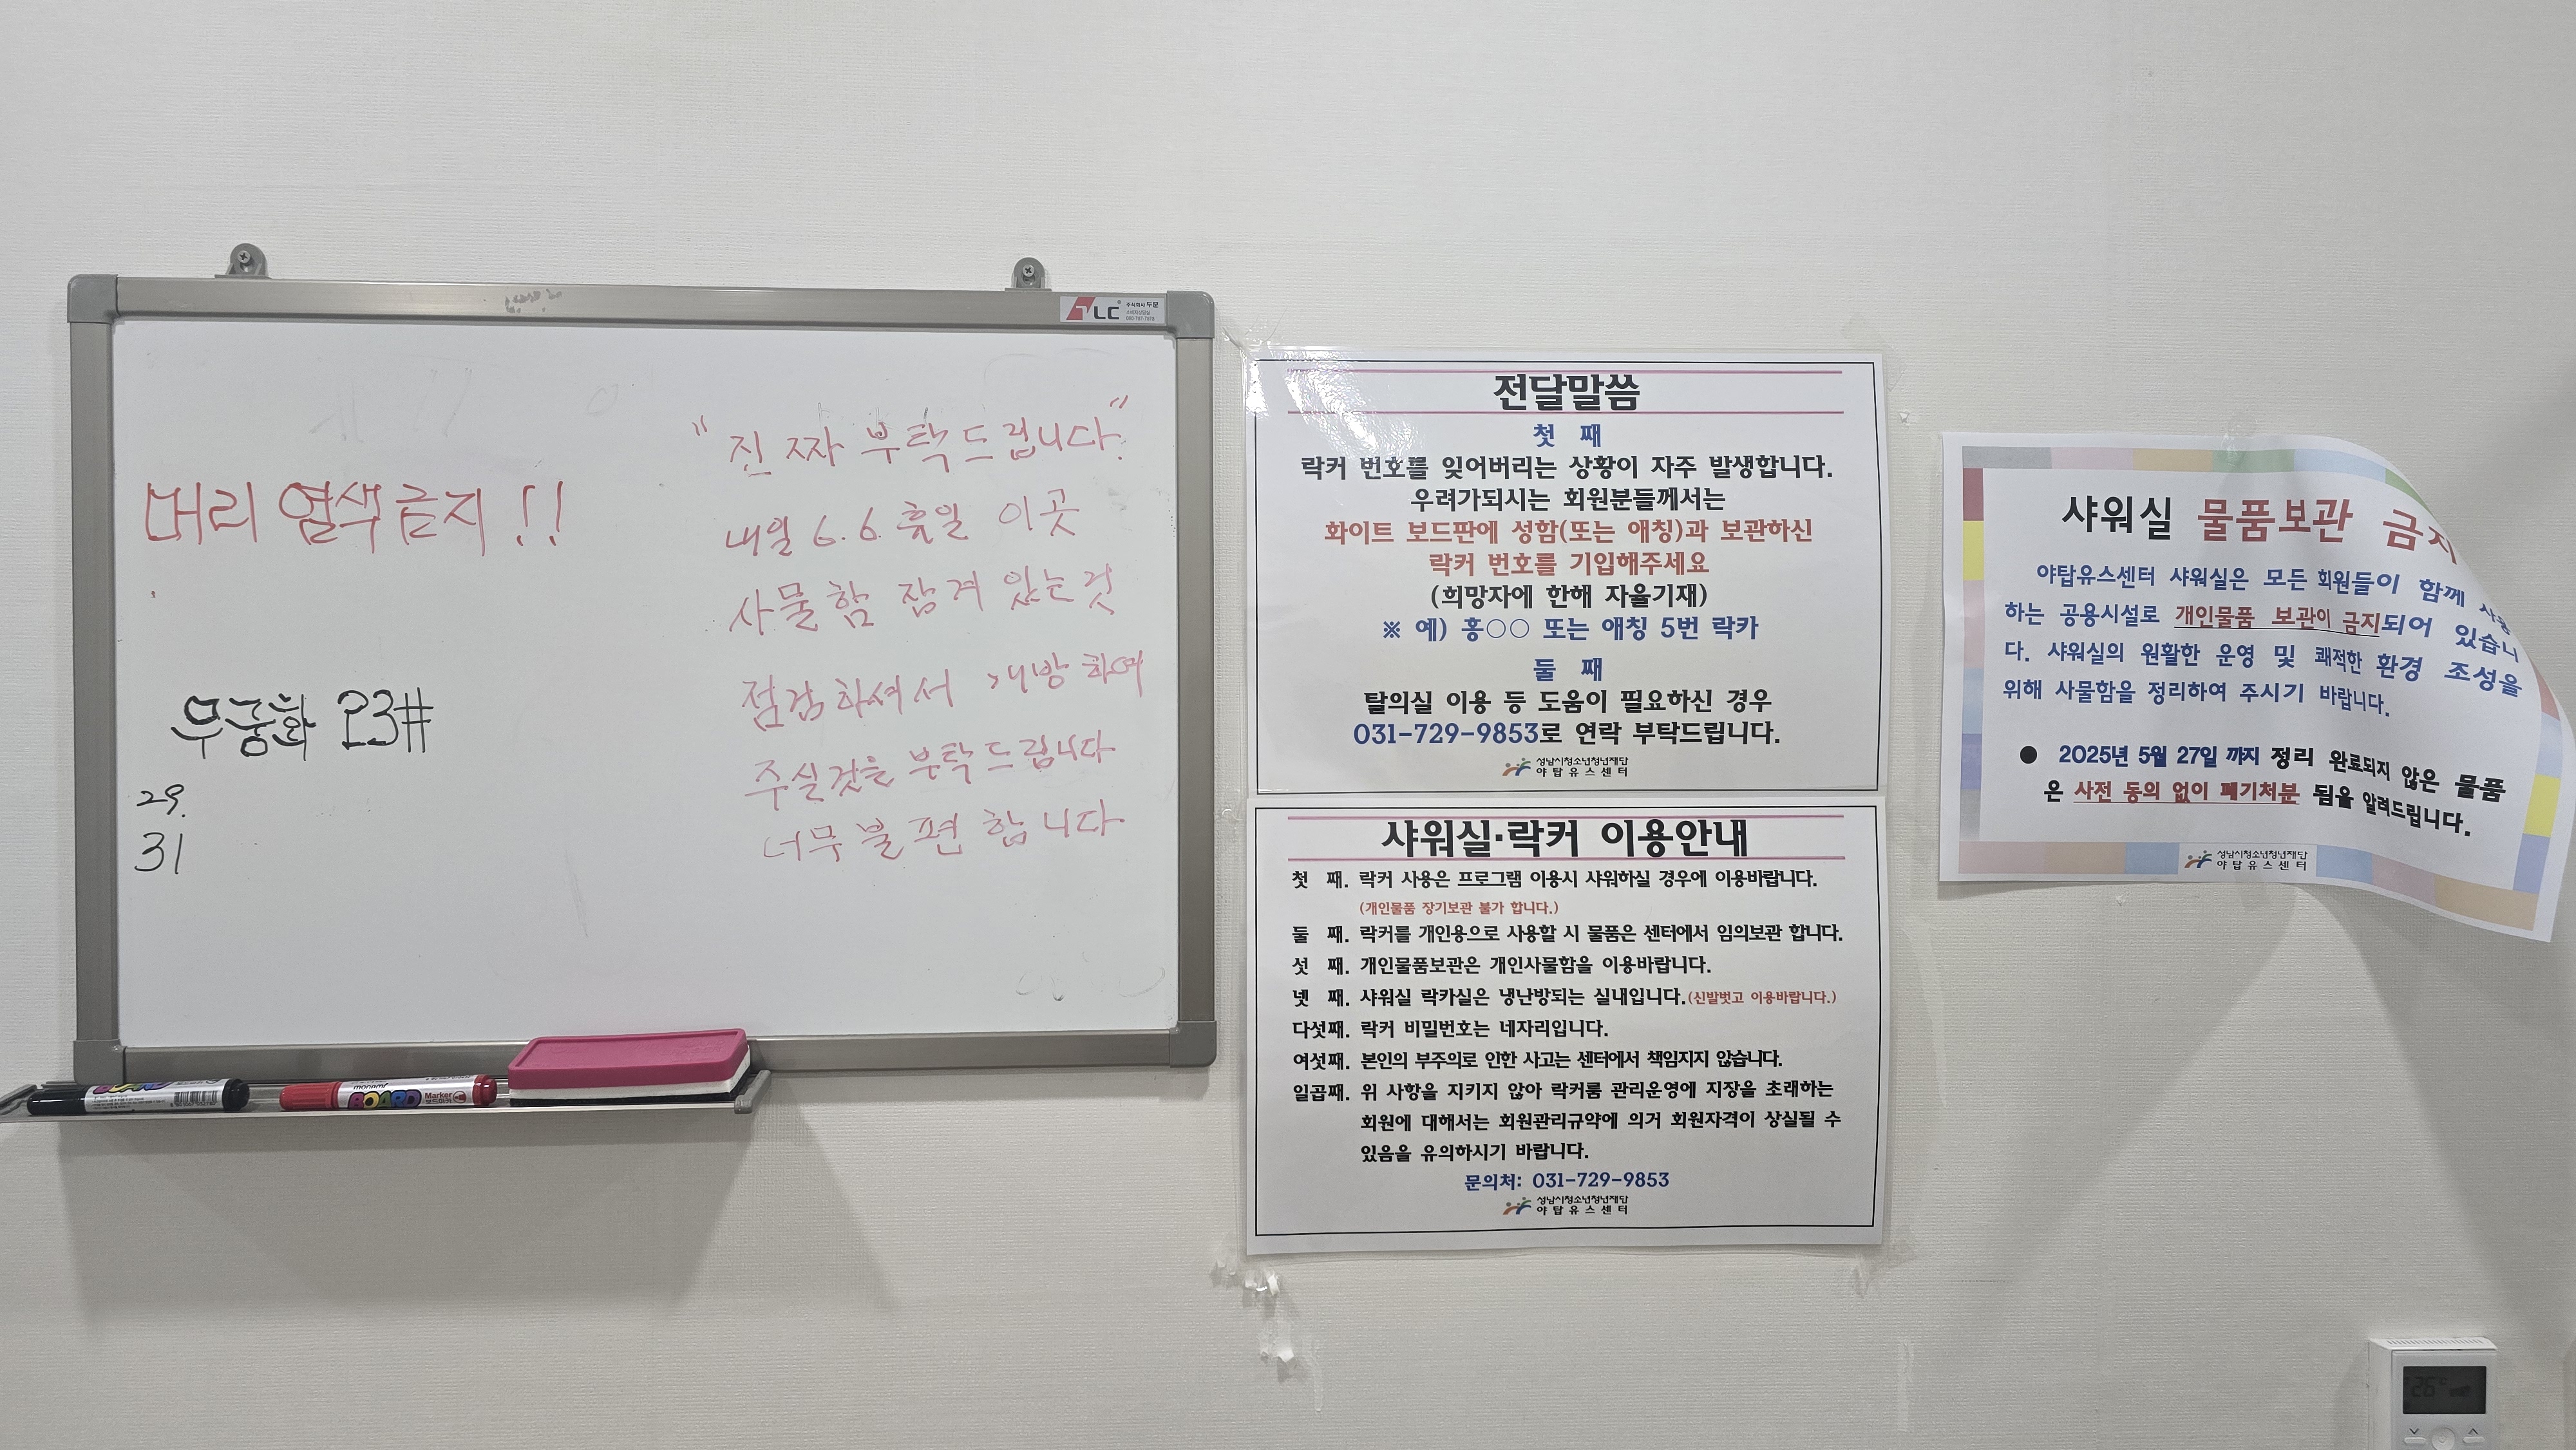 버리 염색금지!!
무궁화 23#
29.
31
"진짜 부탁드립니다."
내일 6.6 휴일 이곳
사물함 잠겨 있는것
점검하셔서 개방하여
주실것을 부탁드립니다
너무불편합니다
LC
주식회사 두문
전달말씀
첫 째
락커 번호를 잊어버리는 상황이 자주 발생합니다.
우려가되시는 회원분들께서는
화이트 보드판에 성함(또는 애칭)과 보관하신
락커 번호를 기입해주세요
(희망자에 한해 자율기재)
※ 예) 홍○○ 또는 애칭 5번 락카
둘 째
탈의실 이용 등 도움이 필요하신 경우
031-729-9853로 연락 부탁드립니다.
성남시청소년청년재단
야탑유스센터
샤워실·락커 이용안내
첫 째. 락커 사용은 프로그램 이용시 샤워하실 경우에 이용바랍니다.
(개인물품 장기보관 불가 합니다.)
둘 째. 락커를 개인용으로 사용할 시 물품은 센터에서 임의보관 합니다.
셋 째. 개인물품보관은 개인사물함을 이용바랍니다.
넷 째. 샤워실 락카실은 냉난방되는 실내입니다.(신발벗고 이용바랍니다.)
다섯째. 락커 비밀번호는 네자리입니다.
여섯째. 본인의 부주의로 인한 사고는 센터에서 책임지지 않습니다.
일곱째. 위 사항을 지키지 않아 락커룸 관리운영에 지장을 초래하는
회원에 대해서는 회원관리규약에 의거 회원자격이 상실될 수
있음을 유의하시기 바랍니다.
문의처: 031-729-9853
성남시청소년청년재단
야탑유스센터
샤워실 물품보관 금지
야탑유스센터 샤워실은 모든 회원들이 함께
하는 공용시설로 개인물품 보관이 금지되어 있습니
다. 샤워실의 원활한 운영 및 쾌적한 환경 조성을
위해 사물함을 정리하여 주시기 바랍니다.
● 2025년 5월 27일 까지 정리 완료되지 않은 물품
은 사전 동의 없이 폐기처분 됨을 알려드립니다.
성남시청소년청년재단
야탑유스센터
monami
BOARD
Marker
보드마카
26